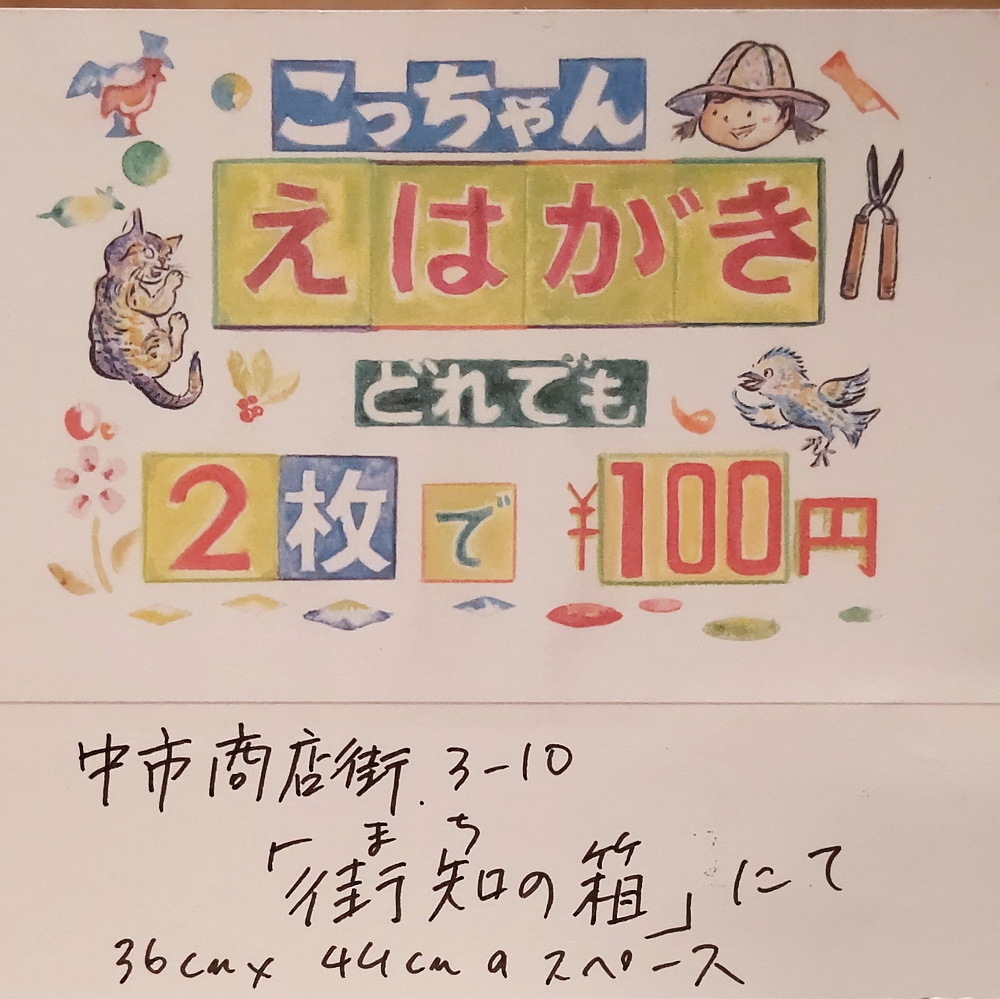 こっちゃん
えはがき
どれでも
2枚で¥100円
中市商店街.3-10
まち
「街知の箱」にて
36cm×44cmのスペース